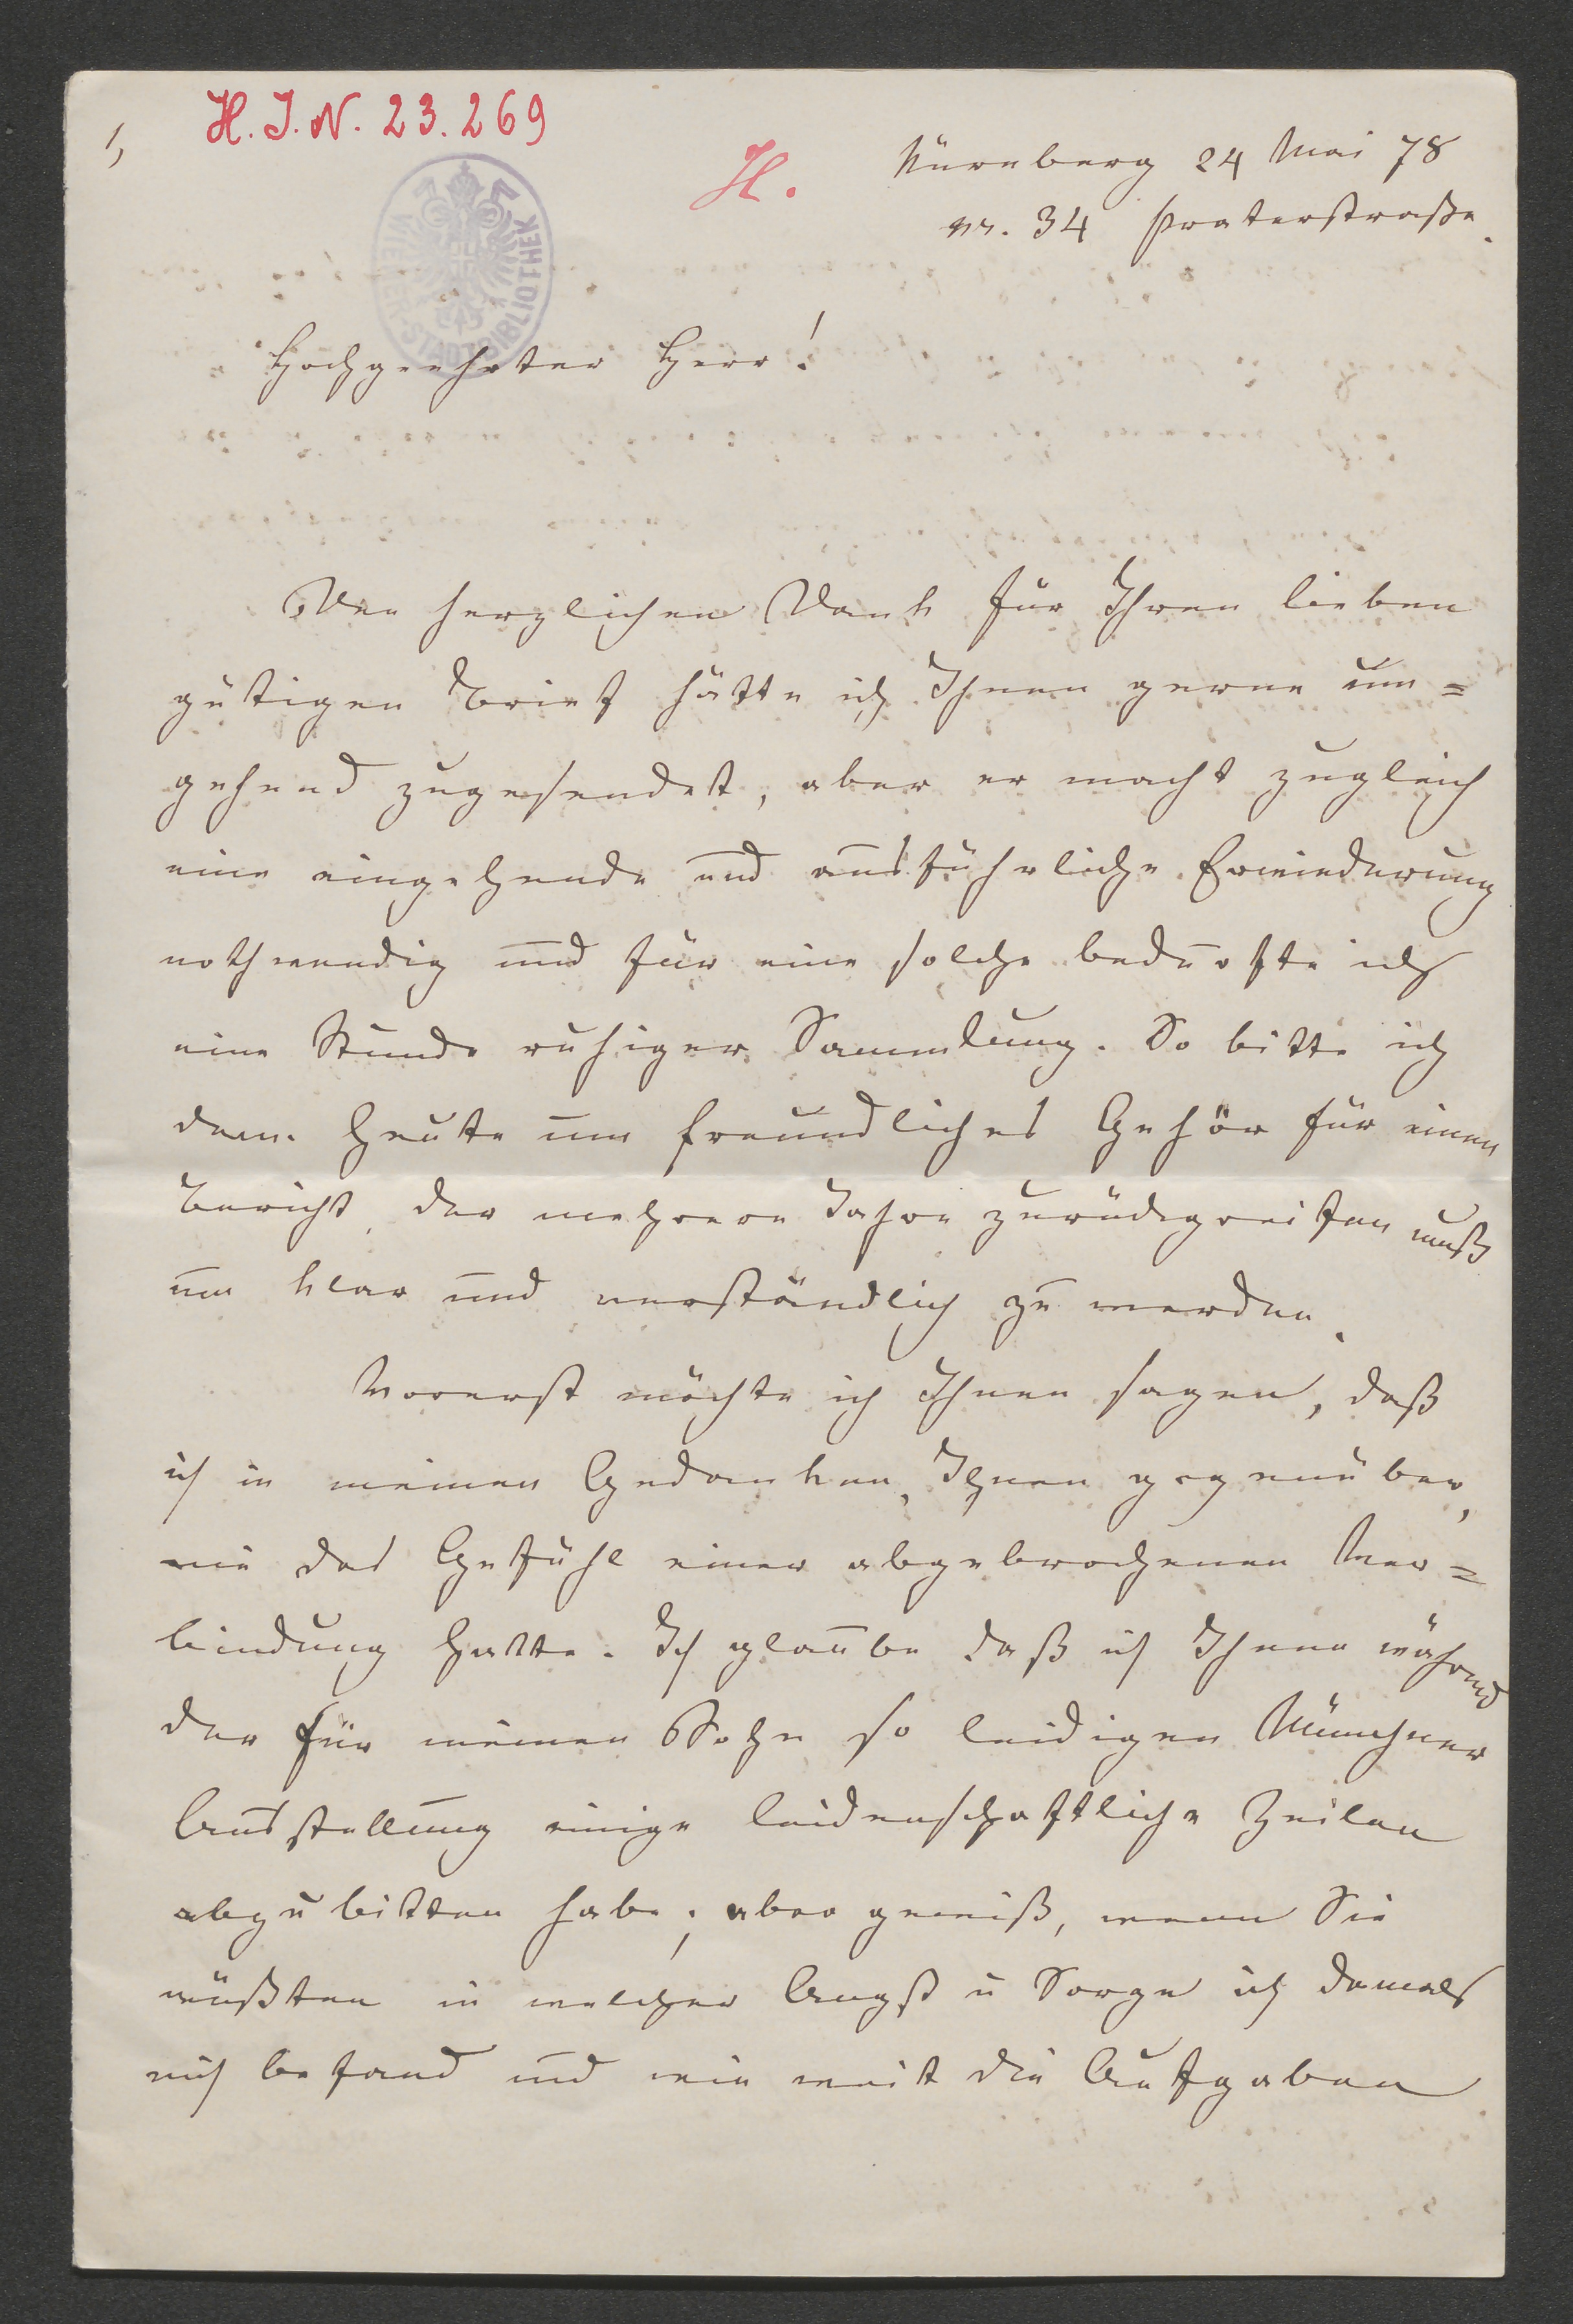 H. I. N. 23.269
1,
H.
Nürnberg 24 Mai 78
nr. 34 Praterstraße.
WIENER STADTBIBLIOTHEK
Hochgeehrter Herr!
Den herzlichen Dank für Ihren lieben
gütigen Brief hätte ich Ihnen gerne um=
gehend zugesendet, aber er macht zugleich
eine eingehende und ausführliche Erwiederung
nothwendig und für eine solche bedurfte ich
eine Stunde ruhiger Sammlung. So bitte ich
denn heute um freundliches Gehör für einen
Bericht, der mehrere Jahre zurückgreifen muß
um klar und verständlich zu werden.
Vorerst möchte ich Ihnen sagen, daß
ich in meinen Gedanken, Ihnen gegenüber,
nie das Gefühl einer abgebrochenen Ver=
bindung hatte. Ich glaube daß ich Ihnen während
der für meinen Sohn so leidigen Münchner
Ausstellung einige leidenschaftliche Zeilen
abzubitten habe; aber gewiß, wenn Sie
wüßten in welcher Angst u Sorge ich damals
mich befand und wie weit die Aufgaben